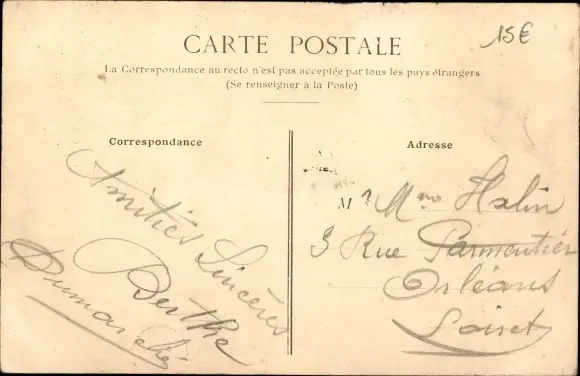 15€
CARTE POSTALE
La Correspondance au recto n'est pas acceptée par tous les pays étrangers
(Se renseigner à la Poste)
Correspondance
Adresse
Amitiés Sincères
Berthe
Dumarché
M r Mme Halin
3 Rue Parmentier
Orléans
Loiret